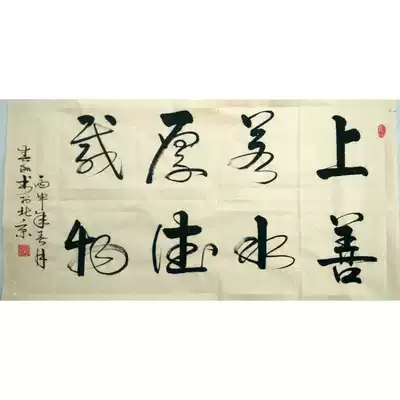 上善
若水
厚德
载物
丙申年春月
书于北京